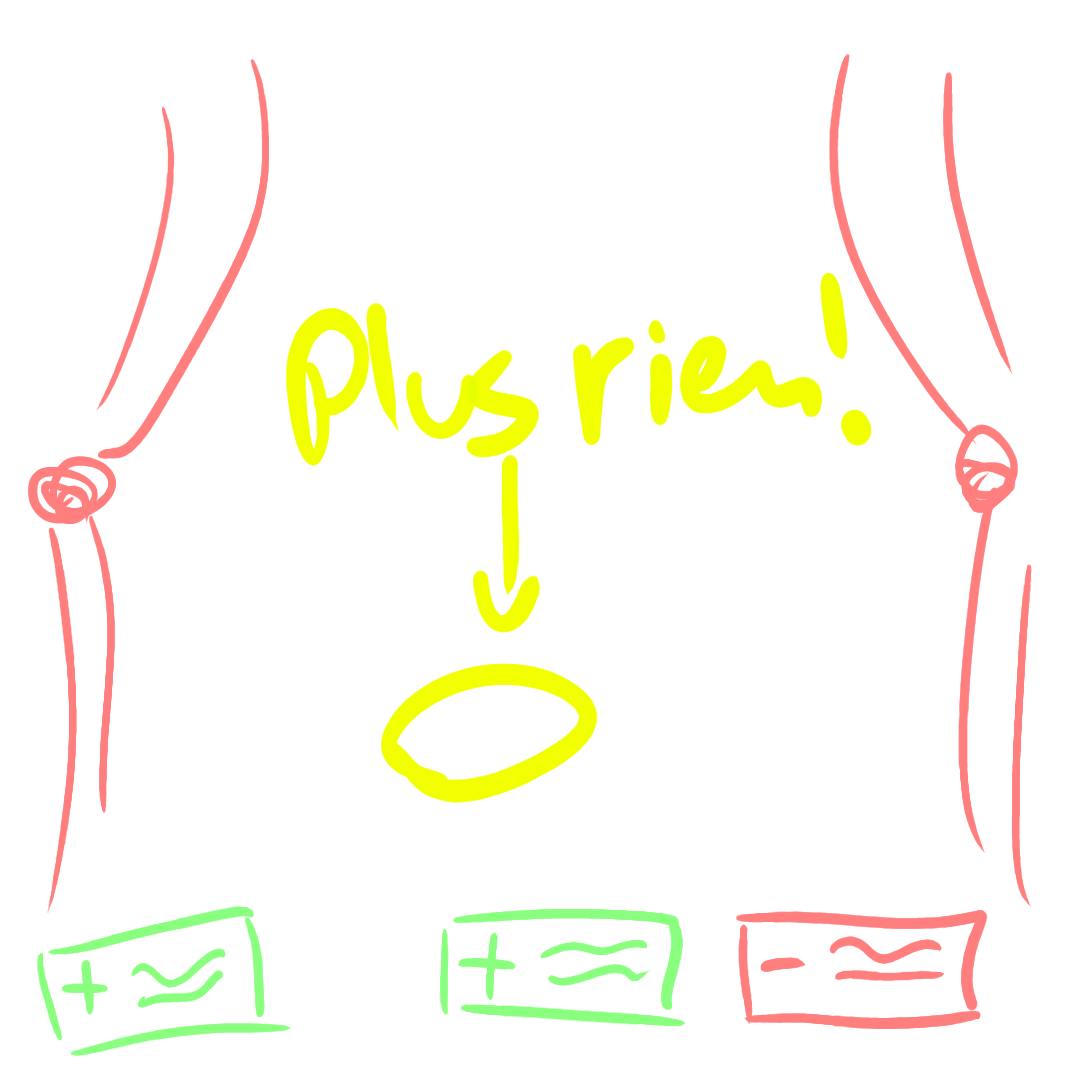 Plus rien!
+
+
-